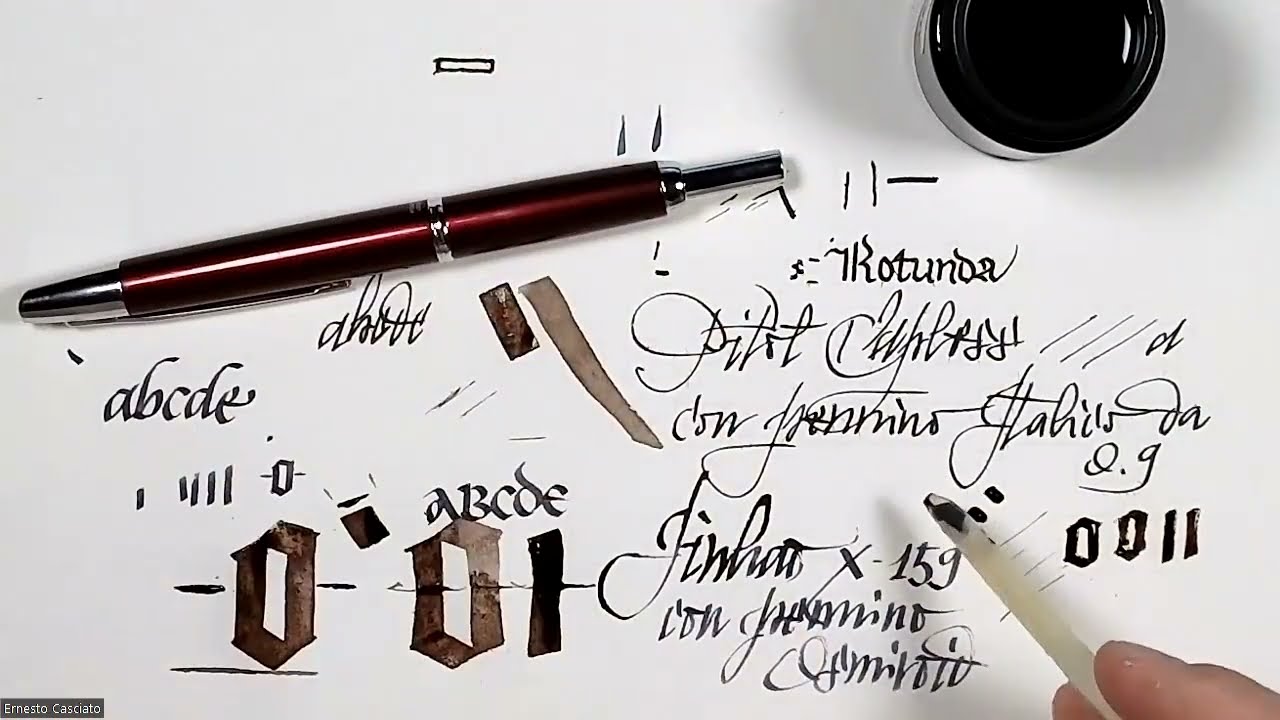 Rotunda
abcde
Pilot Capless d
abcde
con pennino Italico da
0.9
abcde
Jinhao X-159
con pennino
Ernesto Casciato